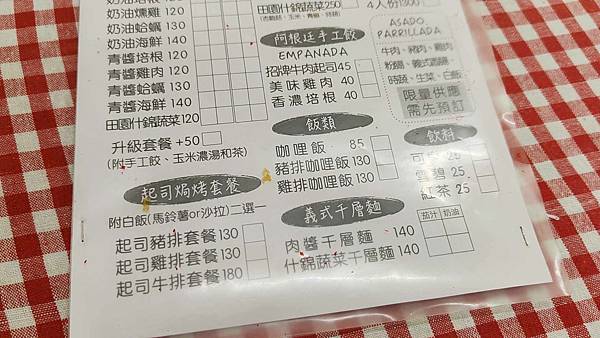 奶油培根 130
奶油燻雞 120
奶油蛤蠣 130
奶油海鮮 140
青醬培根 120
青醬雞肉 120
青醬蛤蠣 130
青醬海鮮 140
田園什錦蔬菜 120
升級套餐 +50
(附手工餃、玉米濃湯和茶)
起司焗烤套餐
附白飯(馬鈴薯or沙拉)二選一
起司豬排套餐 130
起司雞排套餐 130
起司牛排套餐 180
田園什錦蔬菜250
阿根廷手工餃
EMPANADA
招牌牛肉起司45
美味雞肉 40
香濃培根 40
飯類
咖哩飯 85
豬排咖哩飯 130
雞排咖哩飯 130
義式千層麵
茄汁 奶油
肉醬千層麵 140
什錦蔬菜千層麵 140
4人份1300
ASADO
PARRILLADA
牛肉、豬肉、雞肉
粉腸、義式香腸
時蔬、生菜、白飯
限量供應
需先預訂
飲料
可樂 25
雪碧 25
紅茶 25